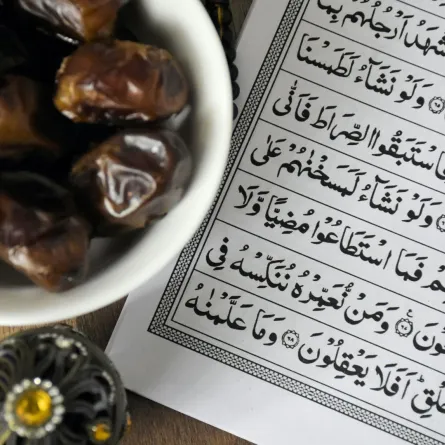 اَرْجُلُهُمْ بِمَا
وَلَوْ نَشَآءُ لَطَمَسْنَا
فَاسْتَبَقُوا الصِّرَاطَ فَاَنّٰى
وَلَوْ نَشَآءُ لَمَسَخْنٰهُمْ عَلٰى
فَمَا اسْتَطَاعُوْا مُضِيًّا وَّلَا
وَمَنْ نُّعَمِّرْهُ نُنَكِّسْهُ فِى
اَفَلَا يَعْقِلُوْنَ ۶۸ وَمَا عَلَّمْنٰهُ